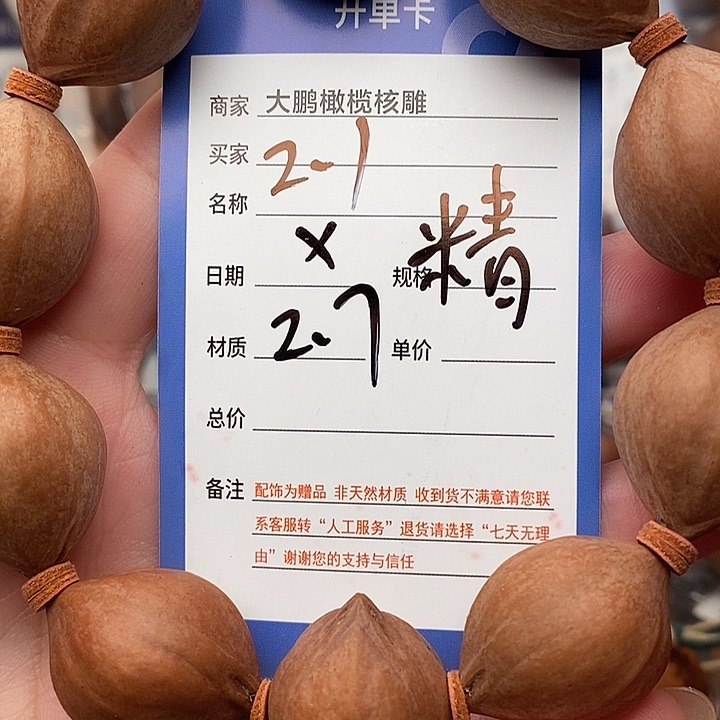 开单卡
商家 大鹏橄榄核雕
买家 2.1
名称
x 精
日期 规格
材质 2.7 单价
总价
备注 配饰为赠品 非天然材质 收到货不满意请您联
系客服转“人工服务”退货请选择“七天无理
由”谢谢您的支持与信任